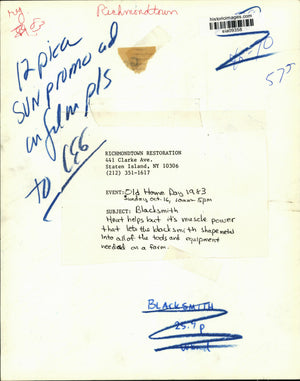 ny
Richmondtown
historicimages.com
12 pica
SUN promo ad
on film pls
TO
575
RICHMONDTOWN RESTORATION
441 Clarke Ave.
Staten Island, NY 10306
(212) 351-1617
EVENT: Old Home Day 1983
Sunday, Oct. 16, 10am-5pm
SUBJECT: Blacksmith
Heat helps but it's muscle power
that lets the blacksmith shape metal
into all of the tools and equipment
needed on a farm.
BLACKSMITH
25.9p